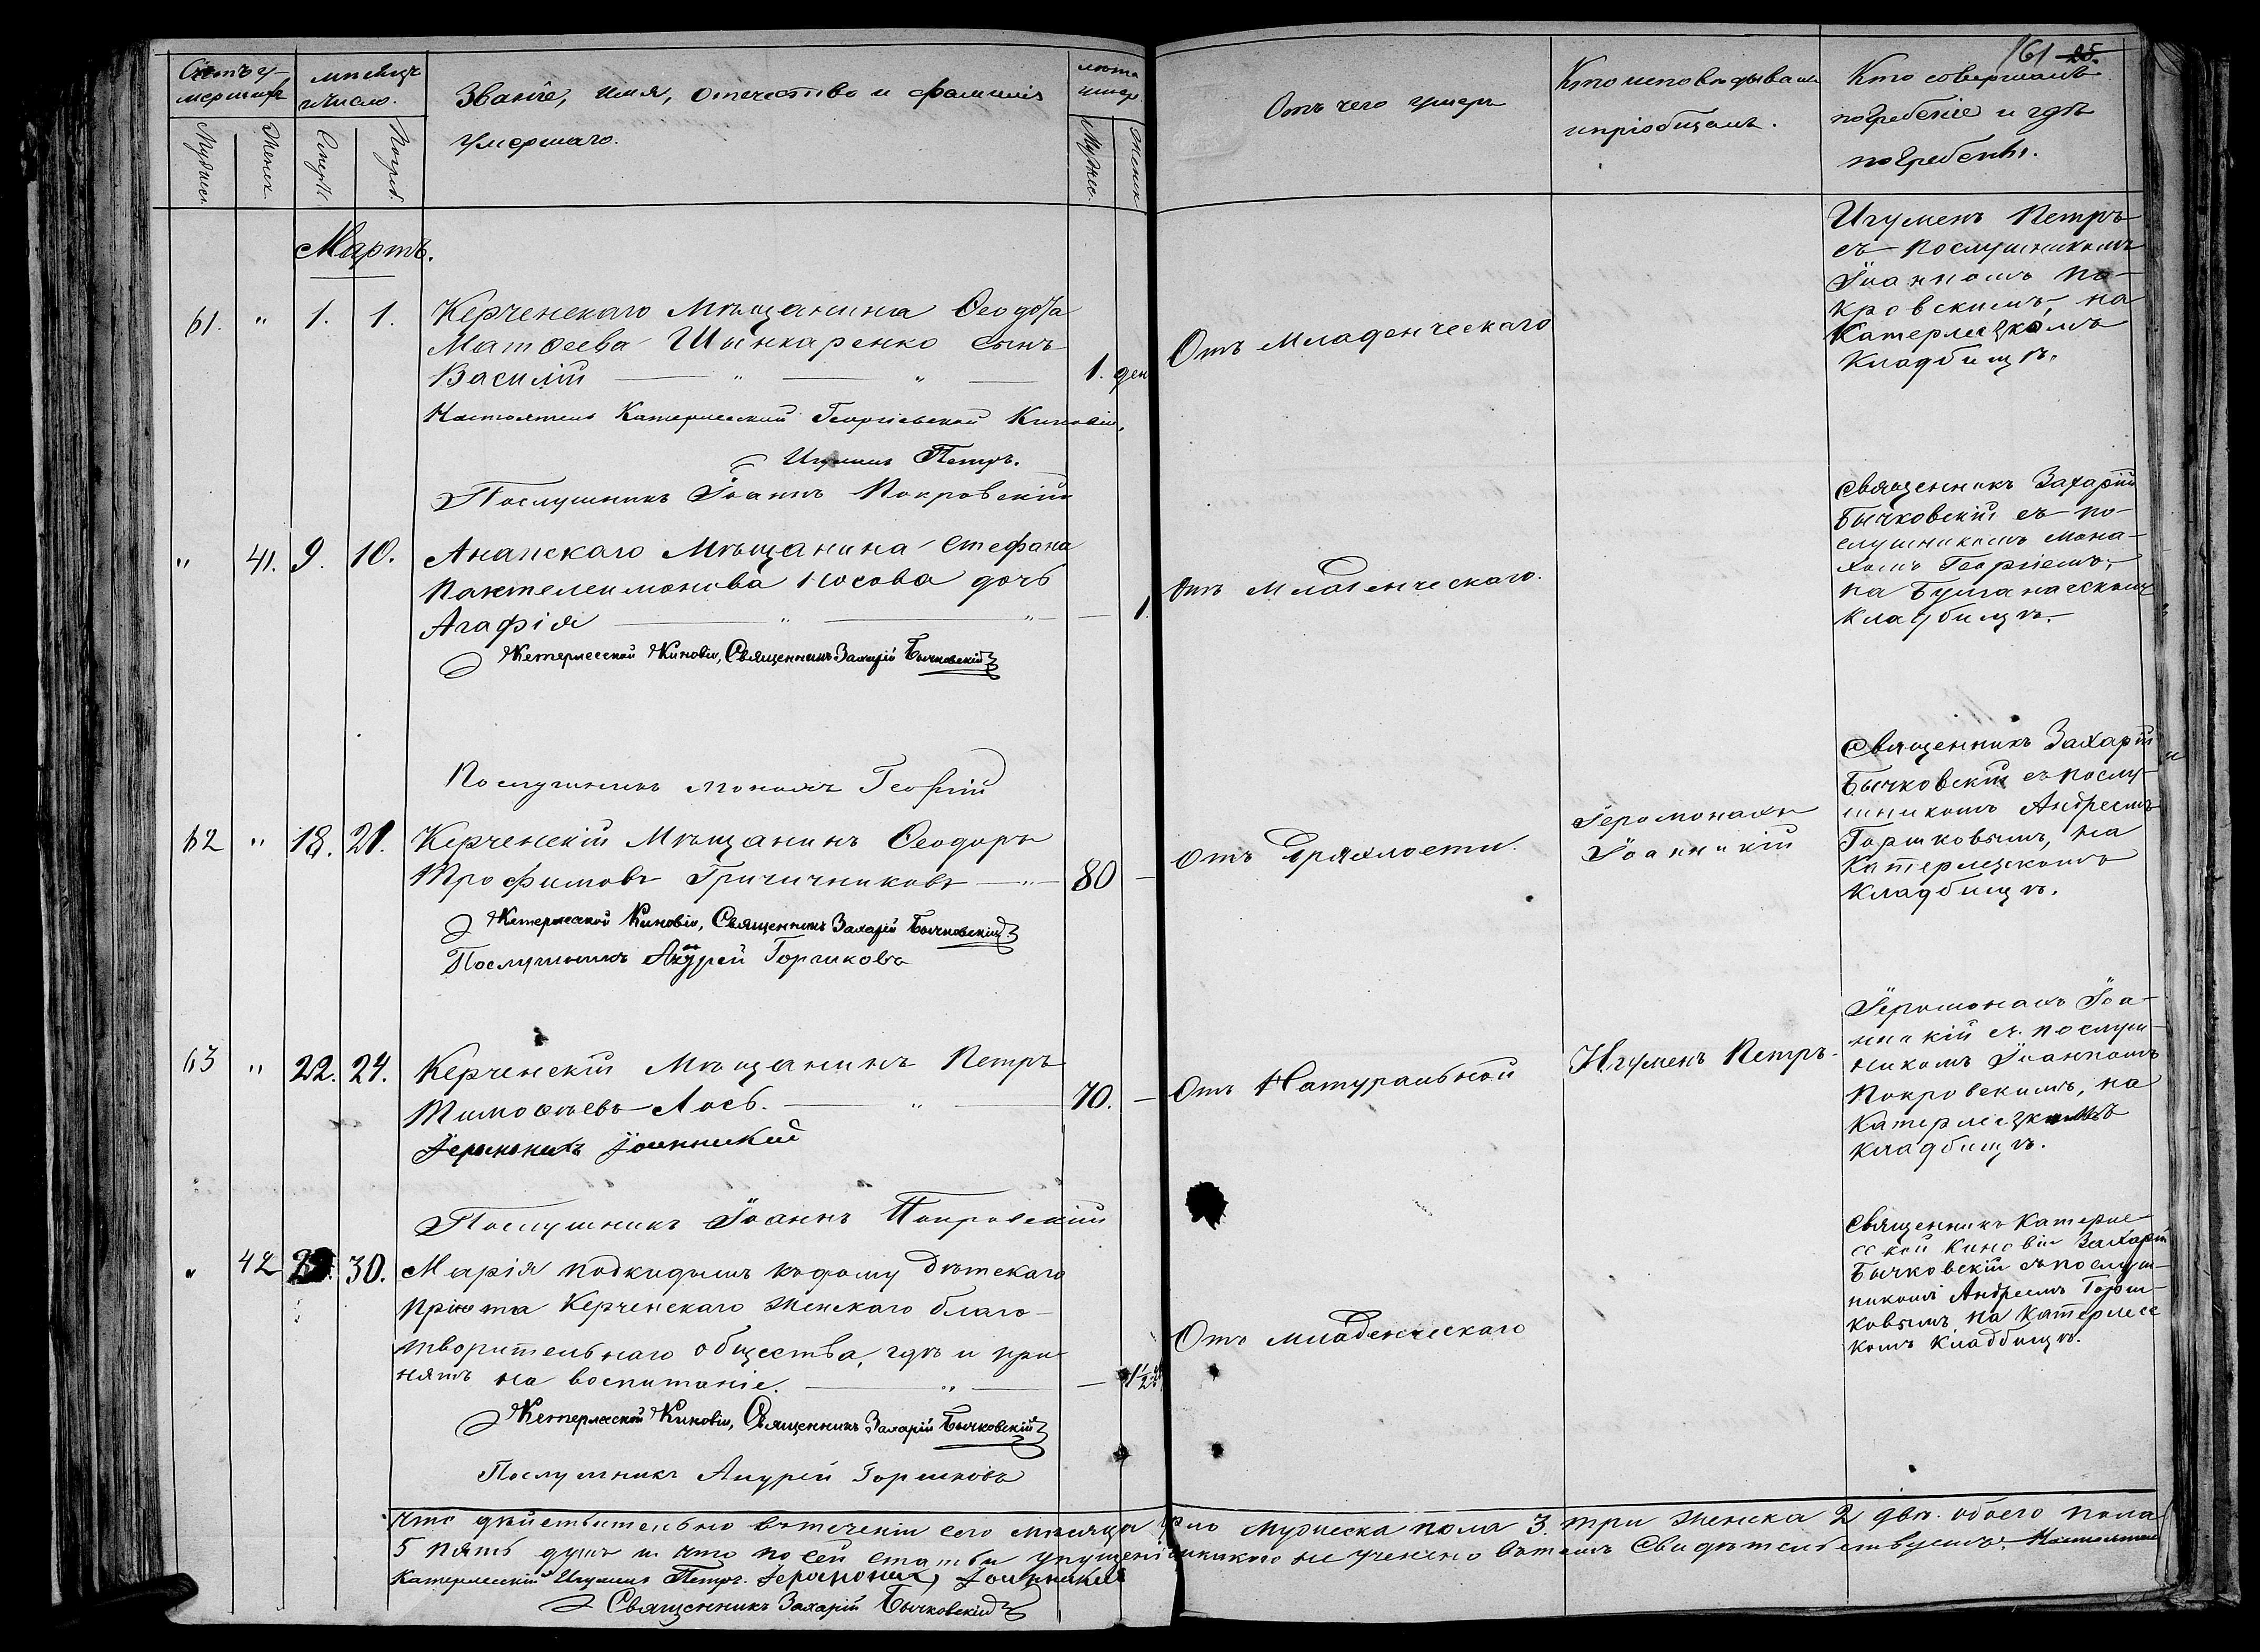 161 25.
Счетъ у-
мершихъ
Мужеск.
Женск.
мѣсяцъ
и число.
Смерти
Погреб.
Званіе, имя, отчество и фамилія
умершаго.
лѣта
умер.
Мужес.
Женск
Отъ чего умеръ
Кто исповѣдывалъ
и пріобщалъ.
Кто совершалъ
погребеніе и гдѣ
погребены.
Мартъ.
61. " 1. 1. Керченскаго Мѣщанина Ѳеодота
Матѳеева Шинкаренко сынъ
Василій — " — " — 1. ден
Настоятель Катерлесской Георгіевской Киновіи,
Игуменъ Петръ.
Послушникъ Іоаннъ Покровскій
Отъ Младенческаго
Игуменъ Петръ
съ послушникомъ
Іоанномъ По-
кровскимъ, на
Катерлезкомъ
Кладбищѣ.
" 41. 9. 10. Анапскаго Мѣщанина Стефана
Пантелеимонова Носова дочь
Агафія — " — " — 1.
Катерлесской Киновіи, Священникъ Захарій Бычковскій
Послушникъ монахъ Георгій
Отъ Младенческаго.
Священникъ Захарій
Бычковскій съ по-
слушникомъ мона-
хомъ Георгіемъ,
на Булганакскомъ
кладбищѣ.
62 " 18. 21. Керченскій Мѣщанинъ Ѳеодоръ
Трофимовъ Гричичниковъ — " — 80 —
Катерлесской Киновіи, Священникъ Захарій Бычковскій
Послушникъ Андрей Горшковъ
Отъ дряхлости.
Іеромонахъ
Іоанникій
Священникъ Захарій
Бычковскій съ послу-
шникомъ Андреемъ
Горшковымъ, на
Катерлезскомъ
Кладбищѣ.
63 " 22. 24. Керченскій Мѣщанинъ Петръ
Тимоѳѣевъ Лось. — " — 70. —
Іеромонахъ Іоанникій
Послушникъ Іоаннъ Покровскій
Отъ Натуральной
Игуменъ Петръ.
Іеромонахъ Іоа-
никій съ послуш-
никомъ Іоанномъ
Покровскимъ, на
Катерлезкомъ
кладбищѣ.
" 42 30. Марія подкидышъ къ дому Дѣтскаго
Пріюта Керченскаго Женскаго благо-
творительнаго общества, гдѣ и при-
нятъ на воспитаніе. — " — — 1 1/2
Катерлесской Киновіи, Священникъ Захарій Бычковскій
Послушникъ Андрей Горшковъ
Отъ младенческаго
Священникъ Катерле-
сской Киновіи Захарій
Бычковскій съ послуш-
никомъ Андреемъ Горш-
ковымъ, на Катерлес
комъ Кладбищѣ.
Что дѣйствительно въ теченіи сего мѣсяца Мужеска пола 3. три Женска 2 двѣ. обоего пола
5 пять душъ и что по сей статьи упущенія никакого не учинено въ томъ Свидѣтельствуемъ. Настоятель
Катерлесскій Игуменъ Петръ. Іеромонахъ Іоанникій
Священникъ Захарій Бычковскій